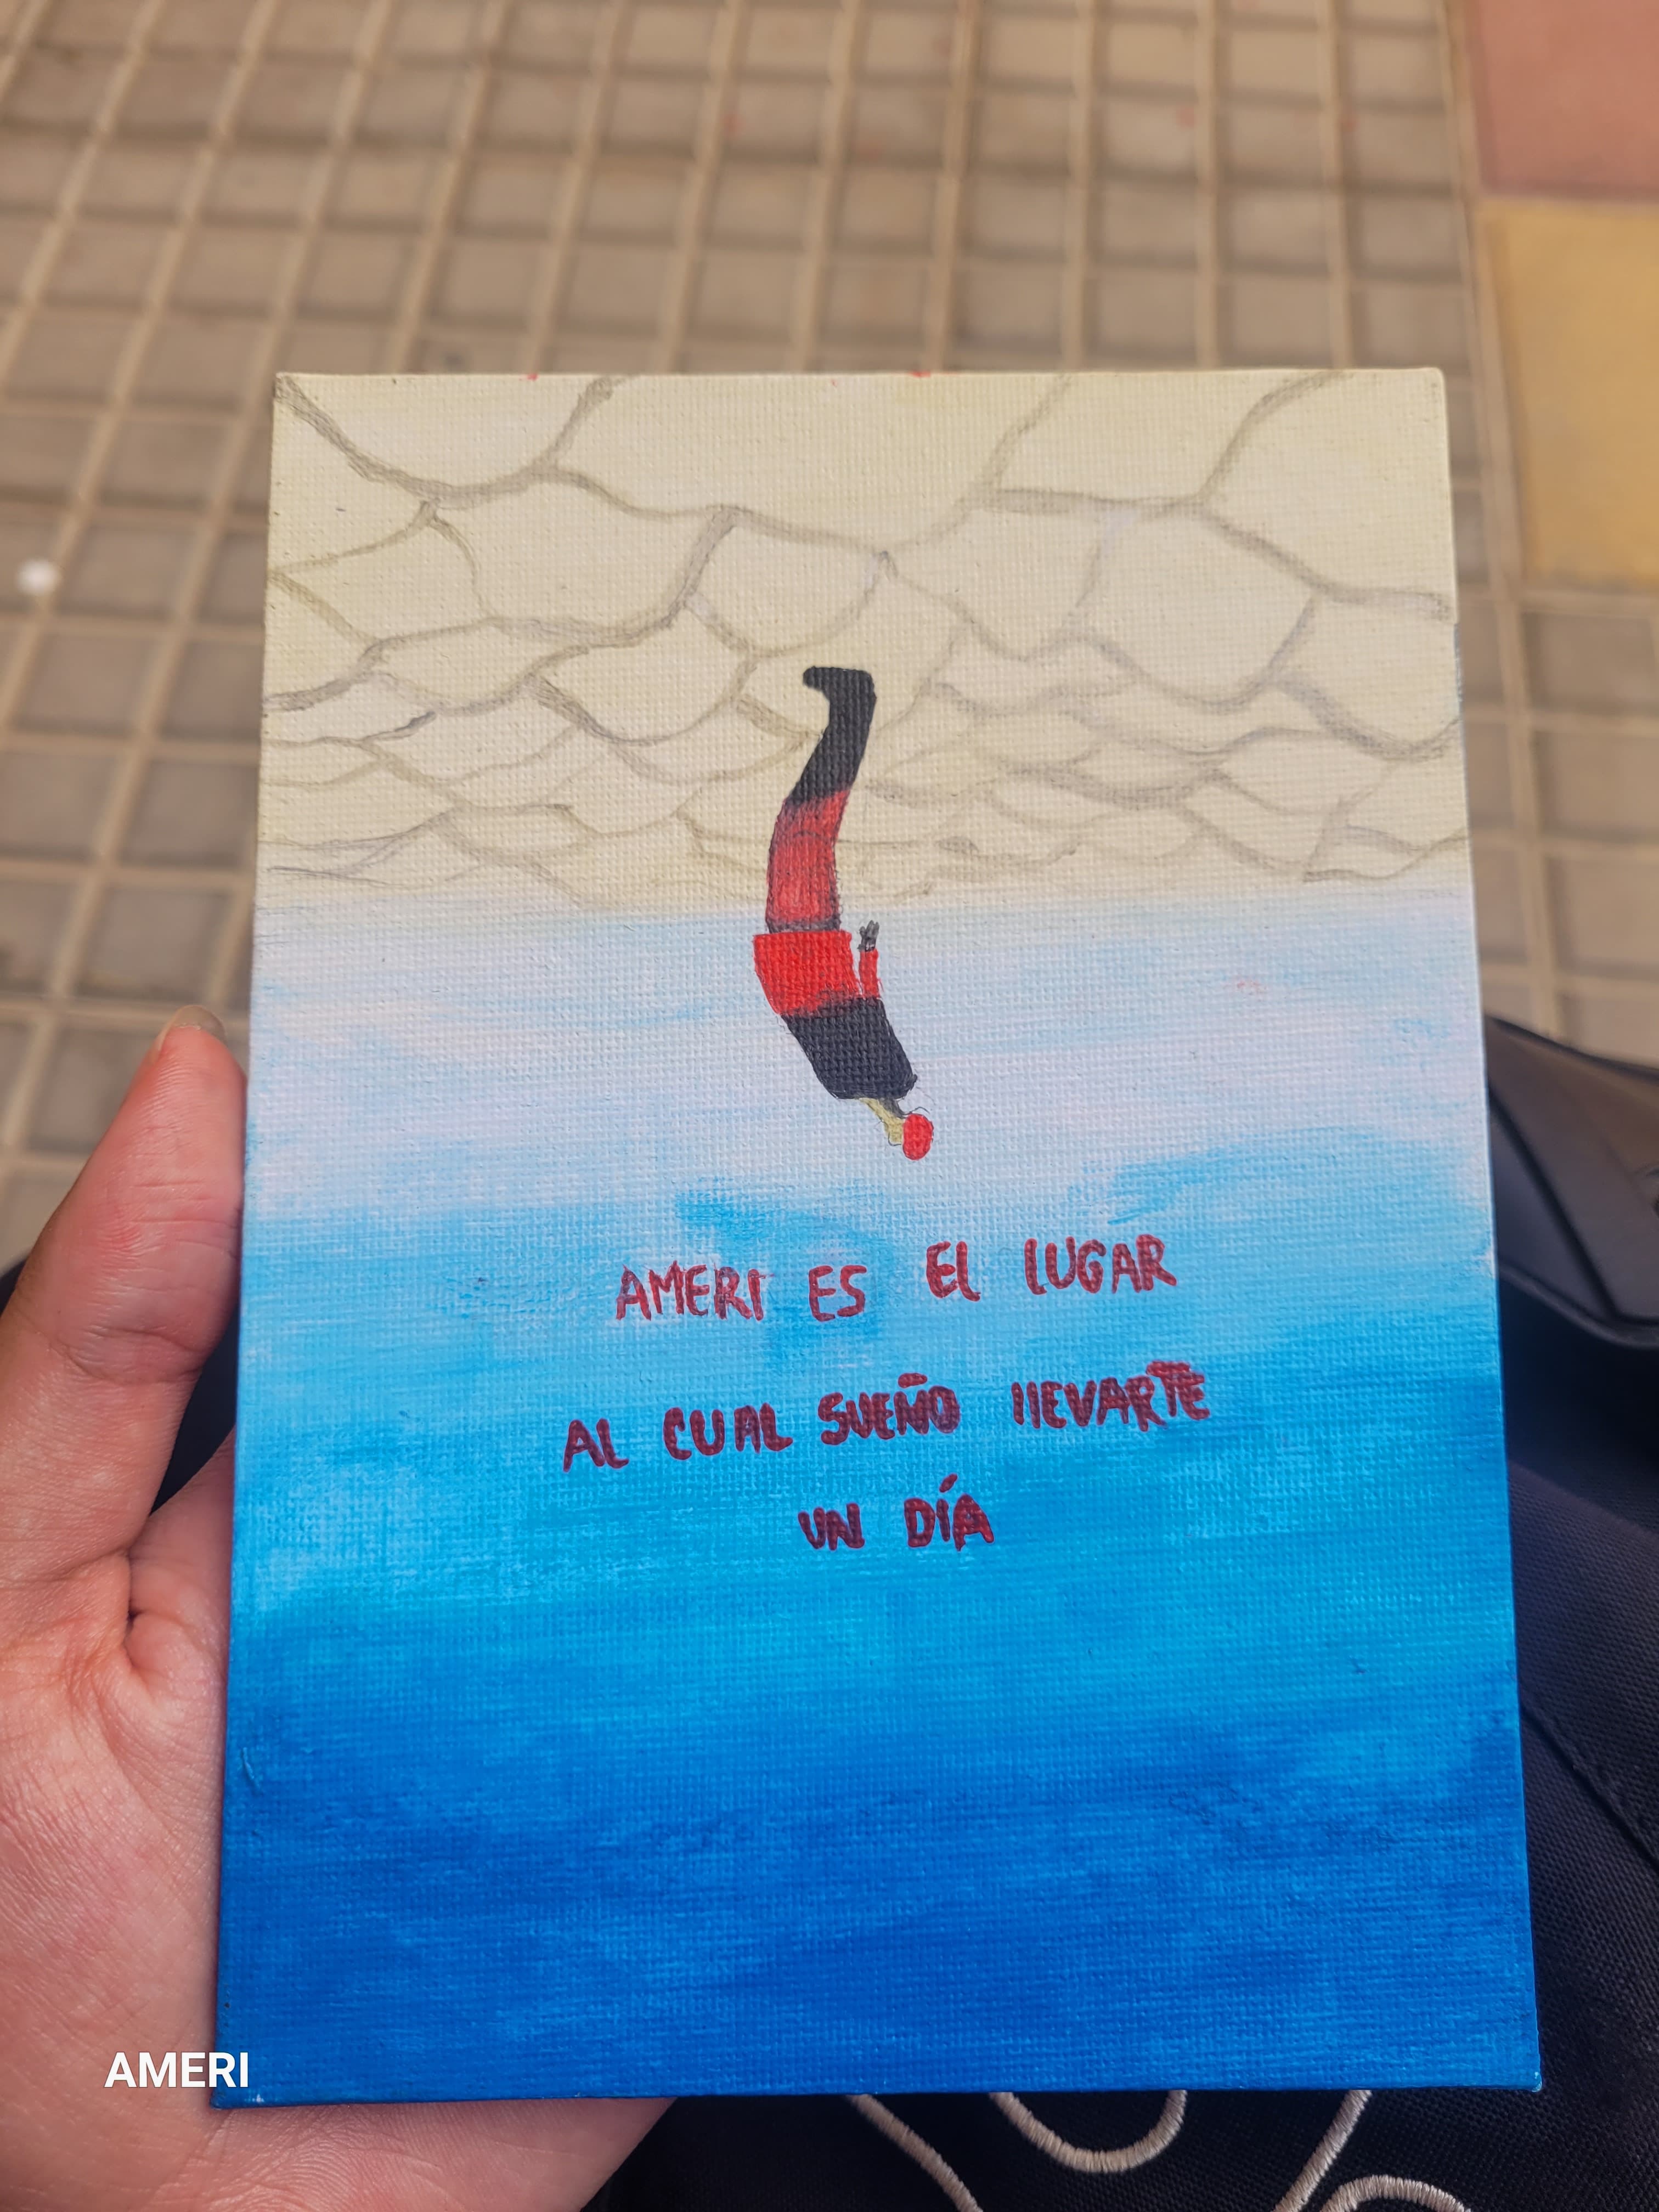 AMERI ES EL LUGAR
AL CUAL SUEÑO llEVARTE
UN DÍA
AMERI